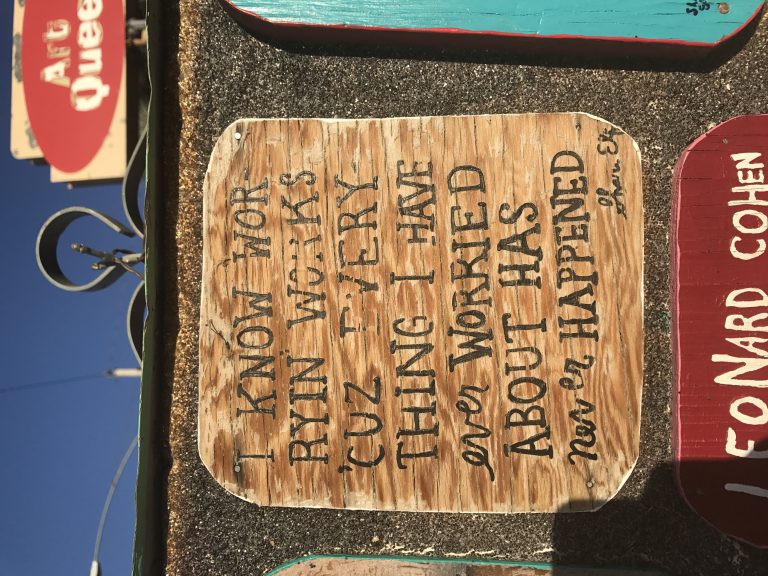 Art
Quee
I KNOW WOR-
RYIN' WORKS
'CUZ EVERY-
THING I HAVE
ever WORRIED
ABOUT HAS
Never HAPPENED
LEONARD COHEN